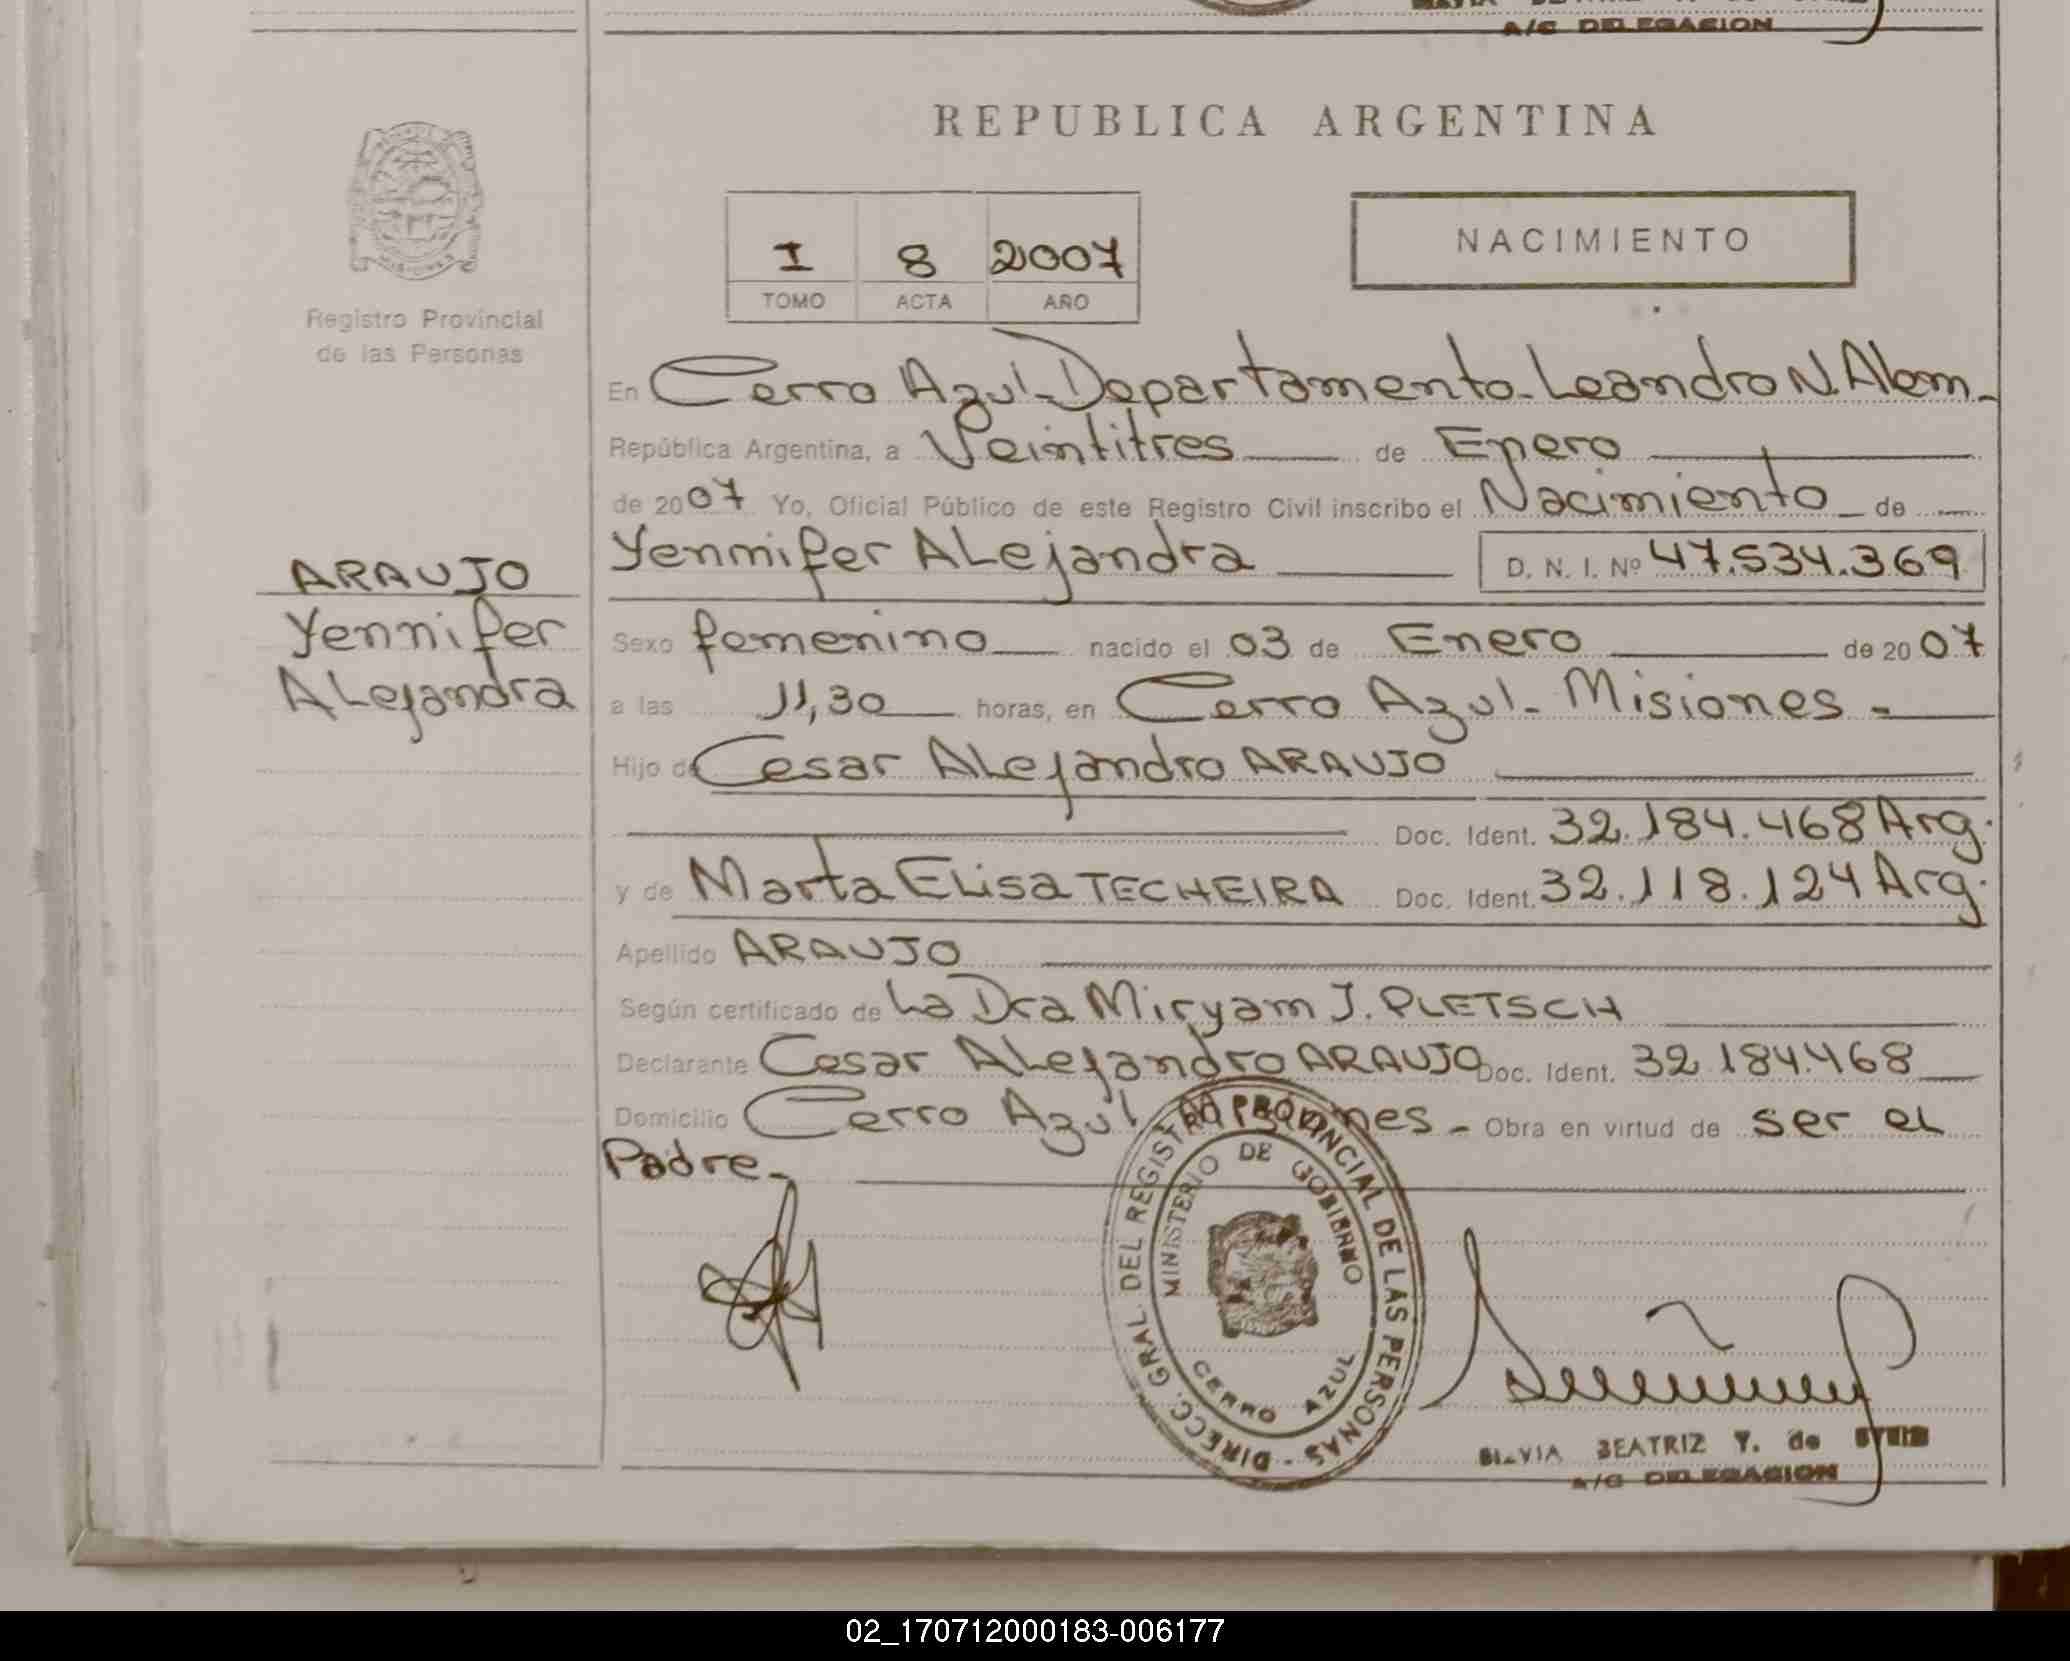 A/C DELEGACION
REPUBLICA ARGENTINA
MISIONES
Registro Provincial
de las Personas
I 8 2007
TOMO ACTA AÑO
NACIMIENTO
En Cerro Azul-Departamento-Leandro N. Alem-
República Argentina, a Veintitres de Enero
de 2007 Yo, Oficial Público de este Registro Civil inscribo el Nacimiento de
Yennifer ALejandra D. N. I. Nº 47.534.369
ARAUJO
Yennifer
ALejandra
Sexo femenino nacido el 03 de Enero de 2007
a las 11,30 horas, en Cerro Azul- Misiones-
Hijo de Cesar ALejandro ARAUJO
Doc. Ident. 32.184.468 Arg.
y de Marta ELisa TECHEIRA Doc. Ident. 32.118.124 Arg.
Apellido ARAUJO
Según certificado de La Dra Miryam J. PLETSCH
Declarante Cesar ALejandro ARAUJO Doc. Ident. 32.184.468
Domicilio Cerro Azul Misiones- Obra en virtud de ser el
Padre-
DIRECC. GRAL. DEL REGISTRO PROVINCIAL DE LAS PERSONAS -
MINISTERIO DE GOBIERNO
CERRO AZUL
SILVIA BEATRIZ Y. de
A/C DELEGACION
02_170712000183-006177